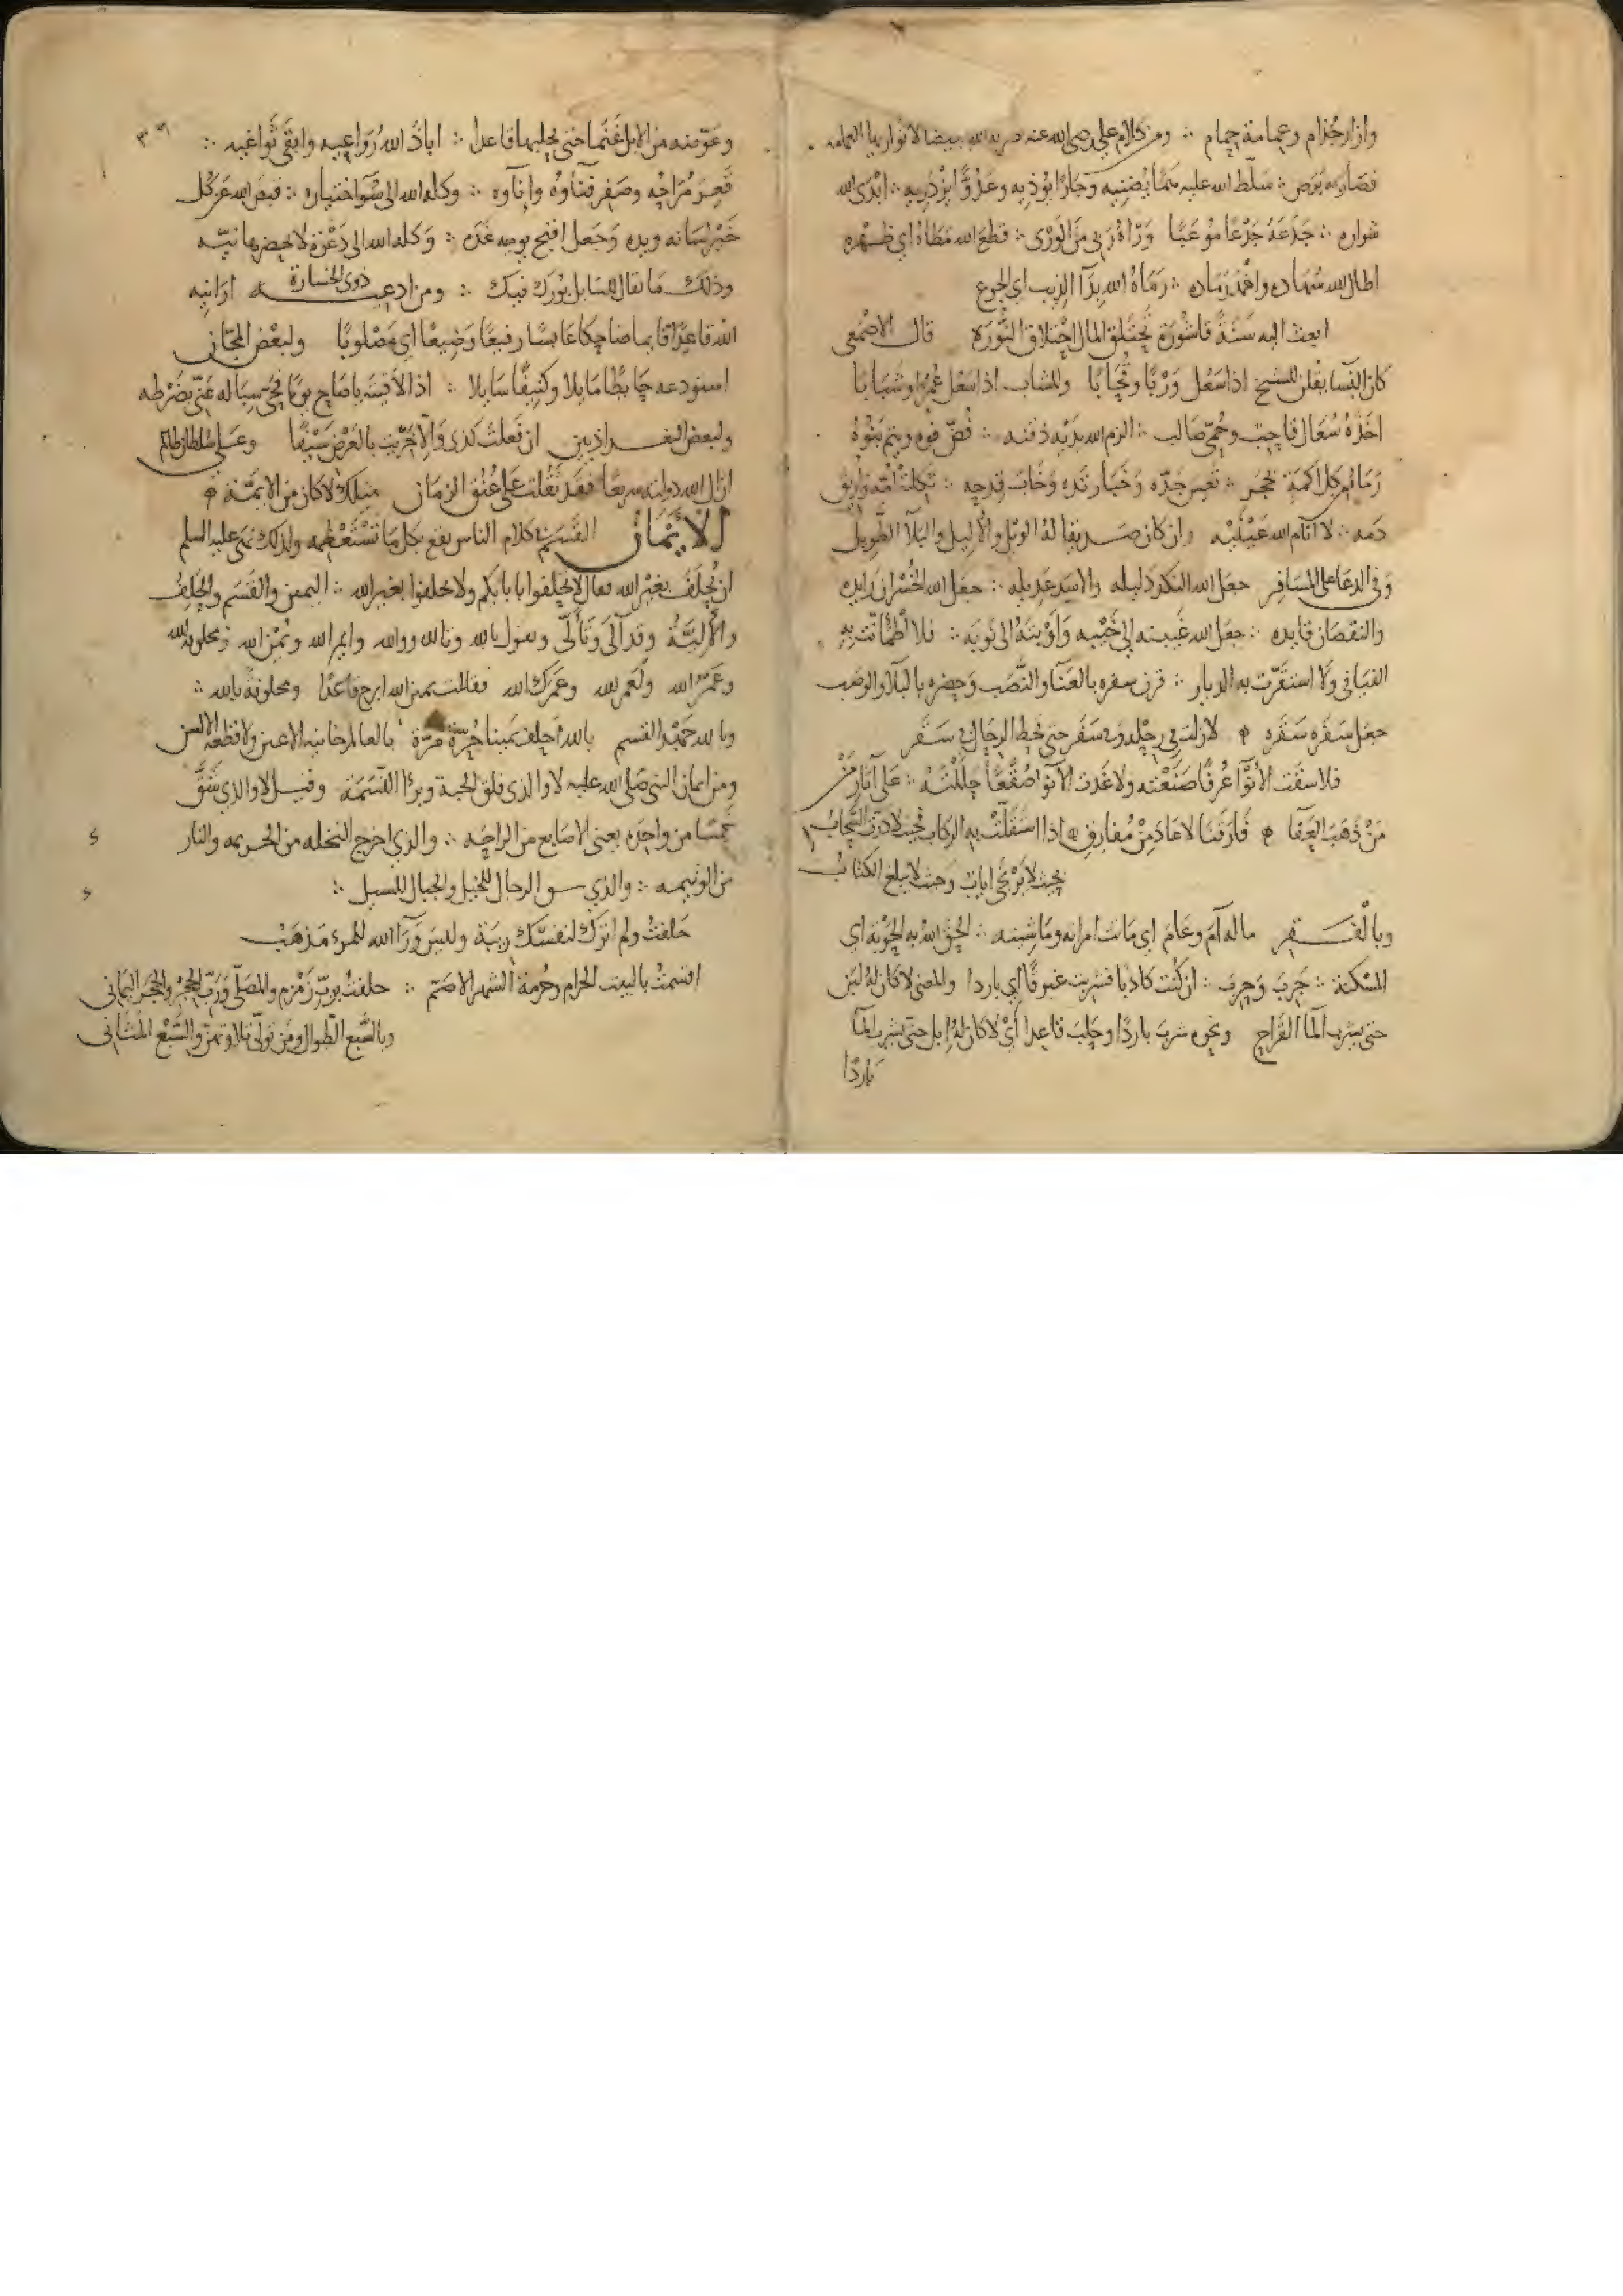 وازار جُزام وعمامة حمام ومن كلام علي رضى الله عنه ضربه الله ببيضا لا تواريها العمامه
فصار به بَرَص سلّط الله عليه همًّا يُضنيه وجارًا يؤذيه وعدُوًّا يُرْديه ابْدَى الله
شواره جَدَعَهُ جَدْعًا مُوعَبًا وَرَاهُ رَبى مَنَ الوَرْى قطع الله مَطَاهُ اي ظهْره
اطال الله سُهاده واخْمَد رَماده رَمَاهُ الله بِدَآ الذِيب اي الجوع
ابعث اليه سَنَةً قاشُورَة تحْتَلق المال احْتلاق النُّورَة قال الاصْمعى
كان النسا يقلن للشيخ اذا سَعَل وَرْيًا وقُحَابًا وللشاب اذا سَعَل عُمرًا وشَبَابًا
اخَذَهُ سُعَال قاحِب وحُمّى صَالب الزم الله يَدَيه ذقنه فُضّ فوه ويتم بَنُوهُ
رَمَاهُ من كل اكمَةٍ بحجَر تعِس جَدّه وَخَبا زنده وَخَابَ قِدحه ثكِلتهُ امّه واريق
دَمه لا انام الله عَيْنَيْه وان كان صَديقا لهُ الويْل والاليل والبَلآ الطَّويل
وفى الدعا على المسَافر جعَل الله النكَد دَليله والاسَد عديله جعَل الله الخُسْران رَايده
والنقصَان قايده جعَل الله غَيبته إلى خَيْبه وَاوْبتهُ الى نَوبَه فلا اطمَانّت به
الفيَافى ولا استقرّت به الديار قرن سفره بالعَنَآ والنَّصَب وحضره بالبَلآ والوَصَب
جعَل سَفَره سَقَره لا زلتَ فى سَفَر حتى تحط الرحَال فى سَقَر
فلا سقَت الانْوَآ عُرفًا صَنَعْته ولا غَدت الآنوا صُقْعًا حللْتَهُ عَلى آثار مَنْ
مَنْ ذَهبَ العَفَا فَارَقنَا لا عَادَ مِنْ مُفَارِق اذا استقَلّت به الركاب فحيْث لا دَرّت السَّحَابُ
بحيث لا يُرْتجَى اياب وحيث لا يبلغ الكتابُ
وبالفَقر ماله آمَ وعَامَ اي مَاتت امرأته ومَاشيته الحَقَ اللهُ به الحَوْبَه اي
المسْكنة جَرِبَ وَحَرِبَ ان كُنت كاذبا فشربت غبوقًا اي باردا والمعنى لا كان لهُ لبَن
حتى يشرب المآ القَراح ونحوه شربَ باردًا وحلَب قاعدا أيْ لا كان لهُ إبل حتّى يشرب المآ
بَاردًا
وعَوّضه من الابل غَنمًا حتى يحلبها قاعدا اباد الله رَواغيه وابقَى ثَواغيه
قَعِرَ مُرَاحُه وصَفِر فِنَاوُهُ وإنآوه وكله الله الى سُوّ اختياره قبضَ الله عَن كُل
خَيْر لسَانه ويده وَجَعل اقبح يوميه غدَه وَكله الله الى دَعْوَة لا يحضر بها نيّه
وذلك ما يقال للسّايل بُورك فيك ومن ادعيه ذوى الخسَارة ارَانيه
الله قاعدًا قايما ضاحكا عَابسًا رفيعًا وَضِيعًا اي مَصْلوبًا ولبعْض المجّان
استودعه حَايطًا مَايلا وكنيفًا سَايلا اذا لاقيْته يا صَاح يومًا فحَيّ سبَاله عَنّى بضَرْطه
ولبعض البغداذيين ان فعَلت كذى وَالّا خَرّيت بالعَرْض سَيْفًا وعلى سُلطان ظالم
ازال الله دولته سريعًا فقَد ثقُلت عَلى عُنُق الزمَان مثلك لا كان من الايمّة
الايْمَان القَسَم فى كلام الناس يقع بكل مَا تَسْتَعْظمه ولذلك نهَى عليه السلم
ان يُحلَفَ بغيْر الله فقال لا تحلفوا بابايكم ولا تحلفوا بغير الله اليمين والقَسَم والحَلِفُ
والأَليَّةُ وقد آلَى وَتَألَّى وتقول بالله وتالله ووالله وايم الله ويمين الله
وعَمرُ الله ولَعمر الله وعَمرك الله فقالت يمين الله ابرح قاعدًا ومحلوفةً بالله
وبالله حَمْيد القسم بالله احلف يَمينا حُرّة مرّة بالعالم خاينه الاعين
ومن ايمان النبى صَلى الله عليه لا والذى فلق الحبة وبرأ النسَمَة وقيل لا والذي شَقَّ
خَمْسًا من واحِده يعنى الاصابع من الراحَه والذي اخرج النخله من الجريمه والنار
من الوثيمه والذي سو الرجال للخيل والجبال للسيل
حَلفتُ ولم اترك لنفسَك رِيبَة وليسَ وَرَآ الله للمرءِ مَذهَبُ
اقسمتُ بالبيت الحرام وحُرمة الشهر الاصَم حلفتُ بربّ زَمْزم والمصَلّى وَرَبّ الحِجْر والحَجر اليَمانى
وبالسَّبع الطِّوال ومَن تولّى تلاوتهنّ والسَّبْع المثَانى